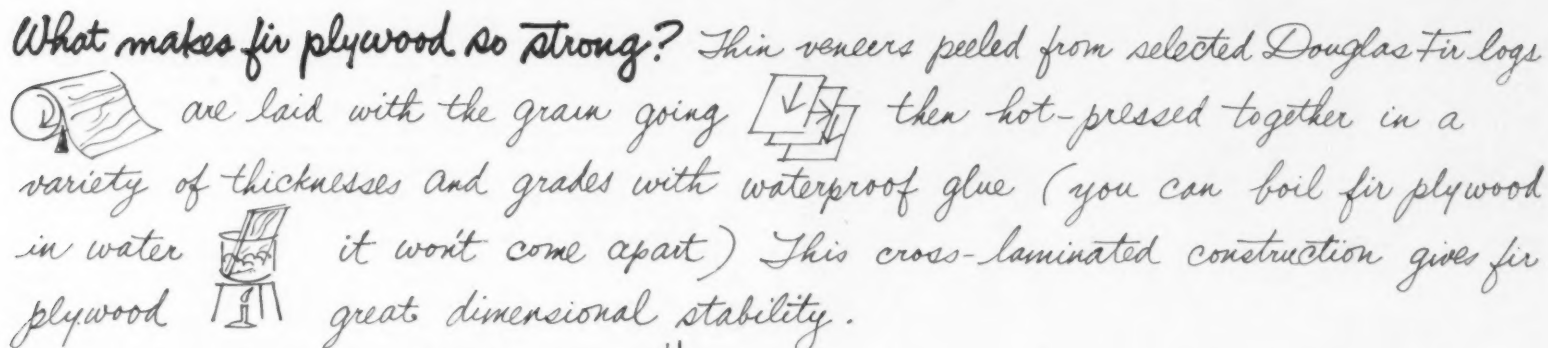 What makes fir plywood so strong? Thin veneers peeled from selected Douglas Fir logs
are laid with the grain going then hot-pressed together in a
variety of thicknesses and grades with waterproof glue (you can boil fir plywood
in water it won't come apart) This cross-laminated construction gives fir
plywood great dimensional stability.